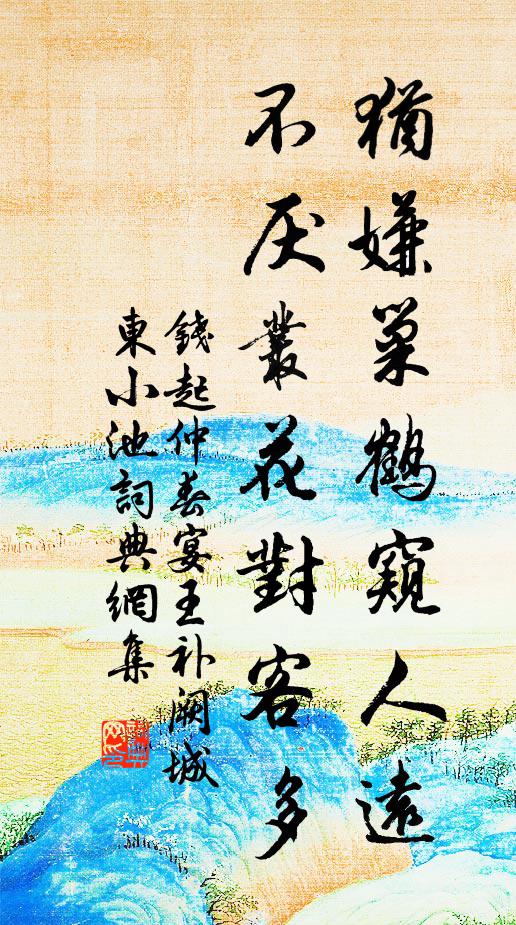 猶嫌巢鶴窺人遠
不厌叢花對客多
錢起仲春宴王补阙城
東小池詞典網集